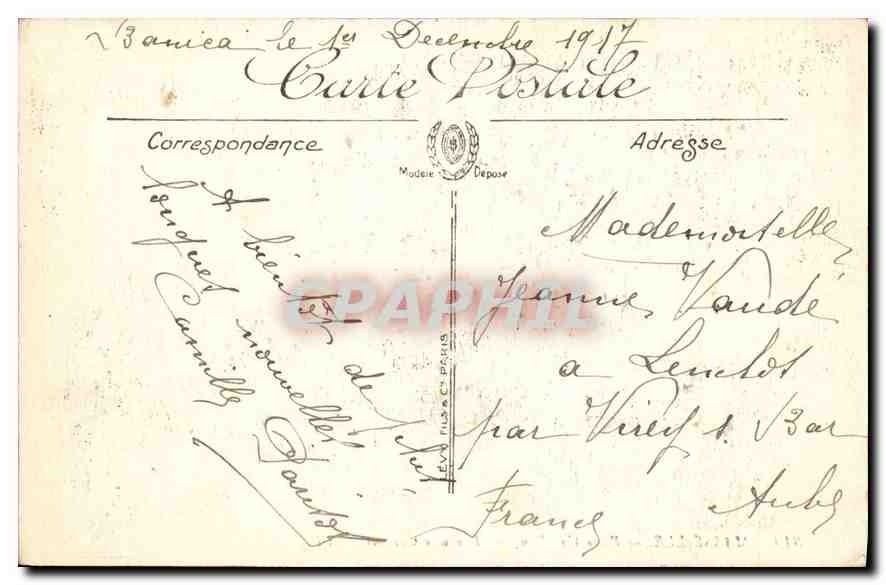 Banica le 1er Décembre 1917
Carte Postale
Correspondance
Adresse
Modèle Déposé
A bientôt de
longues nouvelles
Camille
LÉVY FILS & Cie PARIS
Mademoiselle
Jeanne Vaudé
a Lenclos
par Virey s. Bar
Aube
France
CPAPHIL